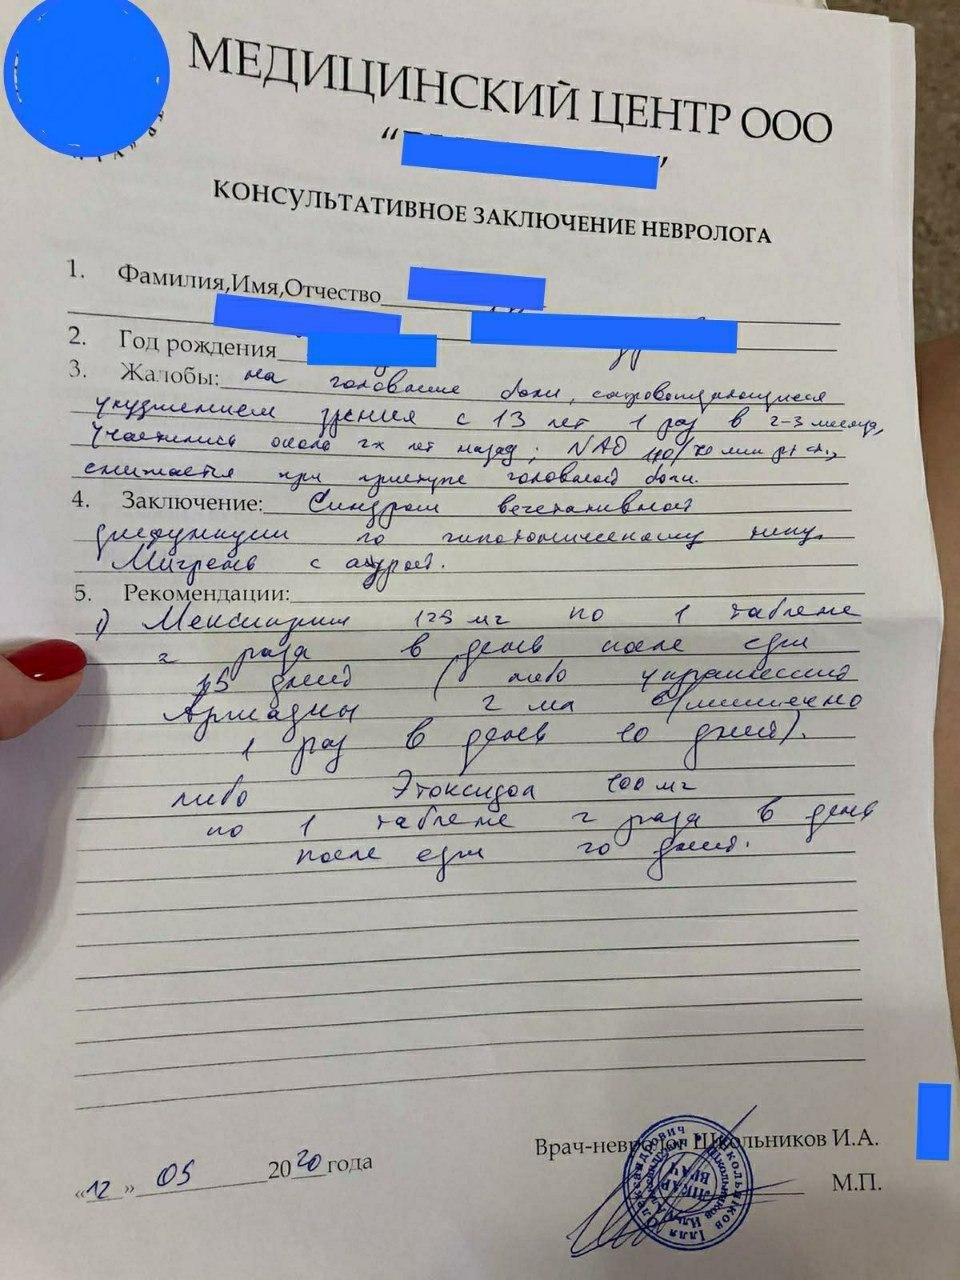 МЕДИЦИНСКИЙ ЦЕНТР ООО
“ ”
КОНСУЛЬТАТИВНОЕ ЗАКЛЮЧЕНИЕ НЕВРОЛОГА
1. Фамилия,Имя,Отчество
2. Год рождения
3. Жалобы: на головные боли, сопровождающиеся
ухудшением зрения с 13 лет 1 раз в 2-3 месяца,
участились около 2х лет назад; 110/70 мм рт ст,
снижается при приступе головной боли.
4. Заключение: Синдром вегетативной
дисфункции по гипотоническому типу.
Мигрень с аурой.
5. Рекомендации:
1) Мексиприм 125 мг по 1 таблетке
2 раза в день после еды
дней (либо украинский
Армадин 2 мл в/мышечно
1 раз в день 10 дней).
либо Этоксидол 100 мг
по 1 таблетке 2 раза в день
после еды дней.
Врач-невролог Школьников И.А.
«12» 05 2020 года
М.П.
Школьніков Ілля Олександрович
ЛІКАР
ВРАЧ